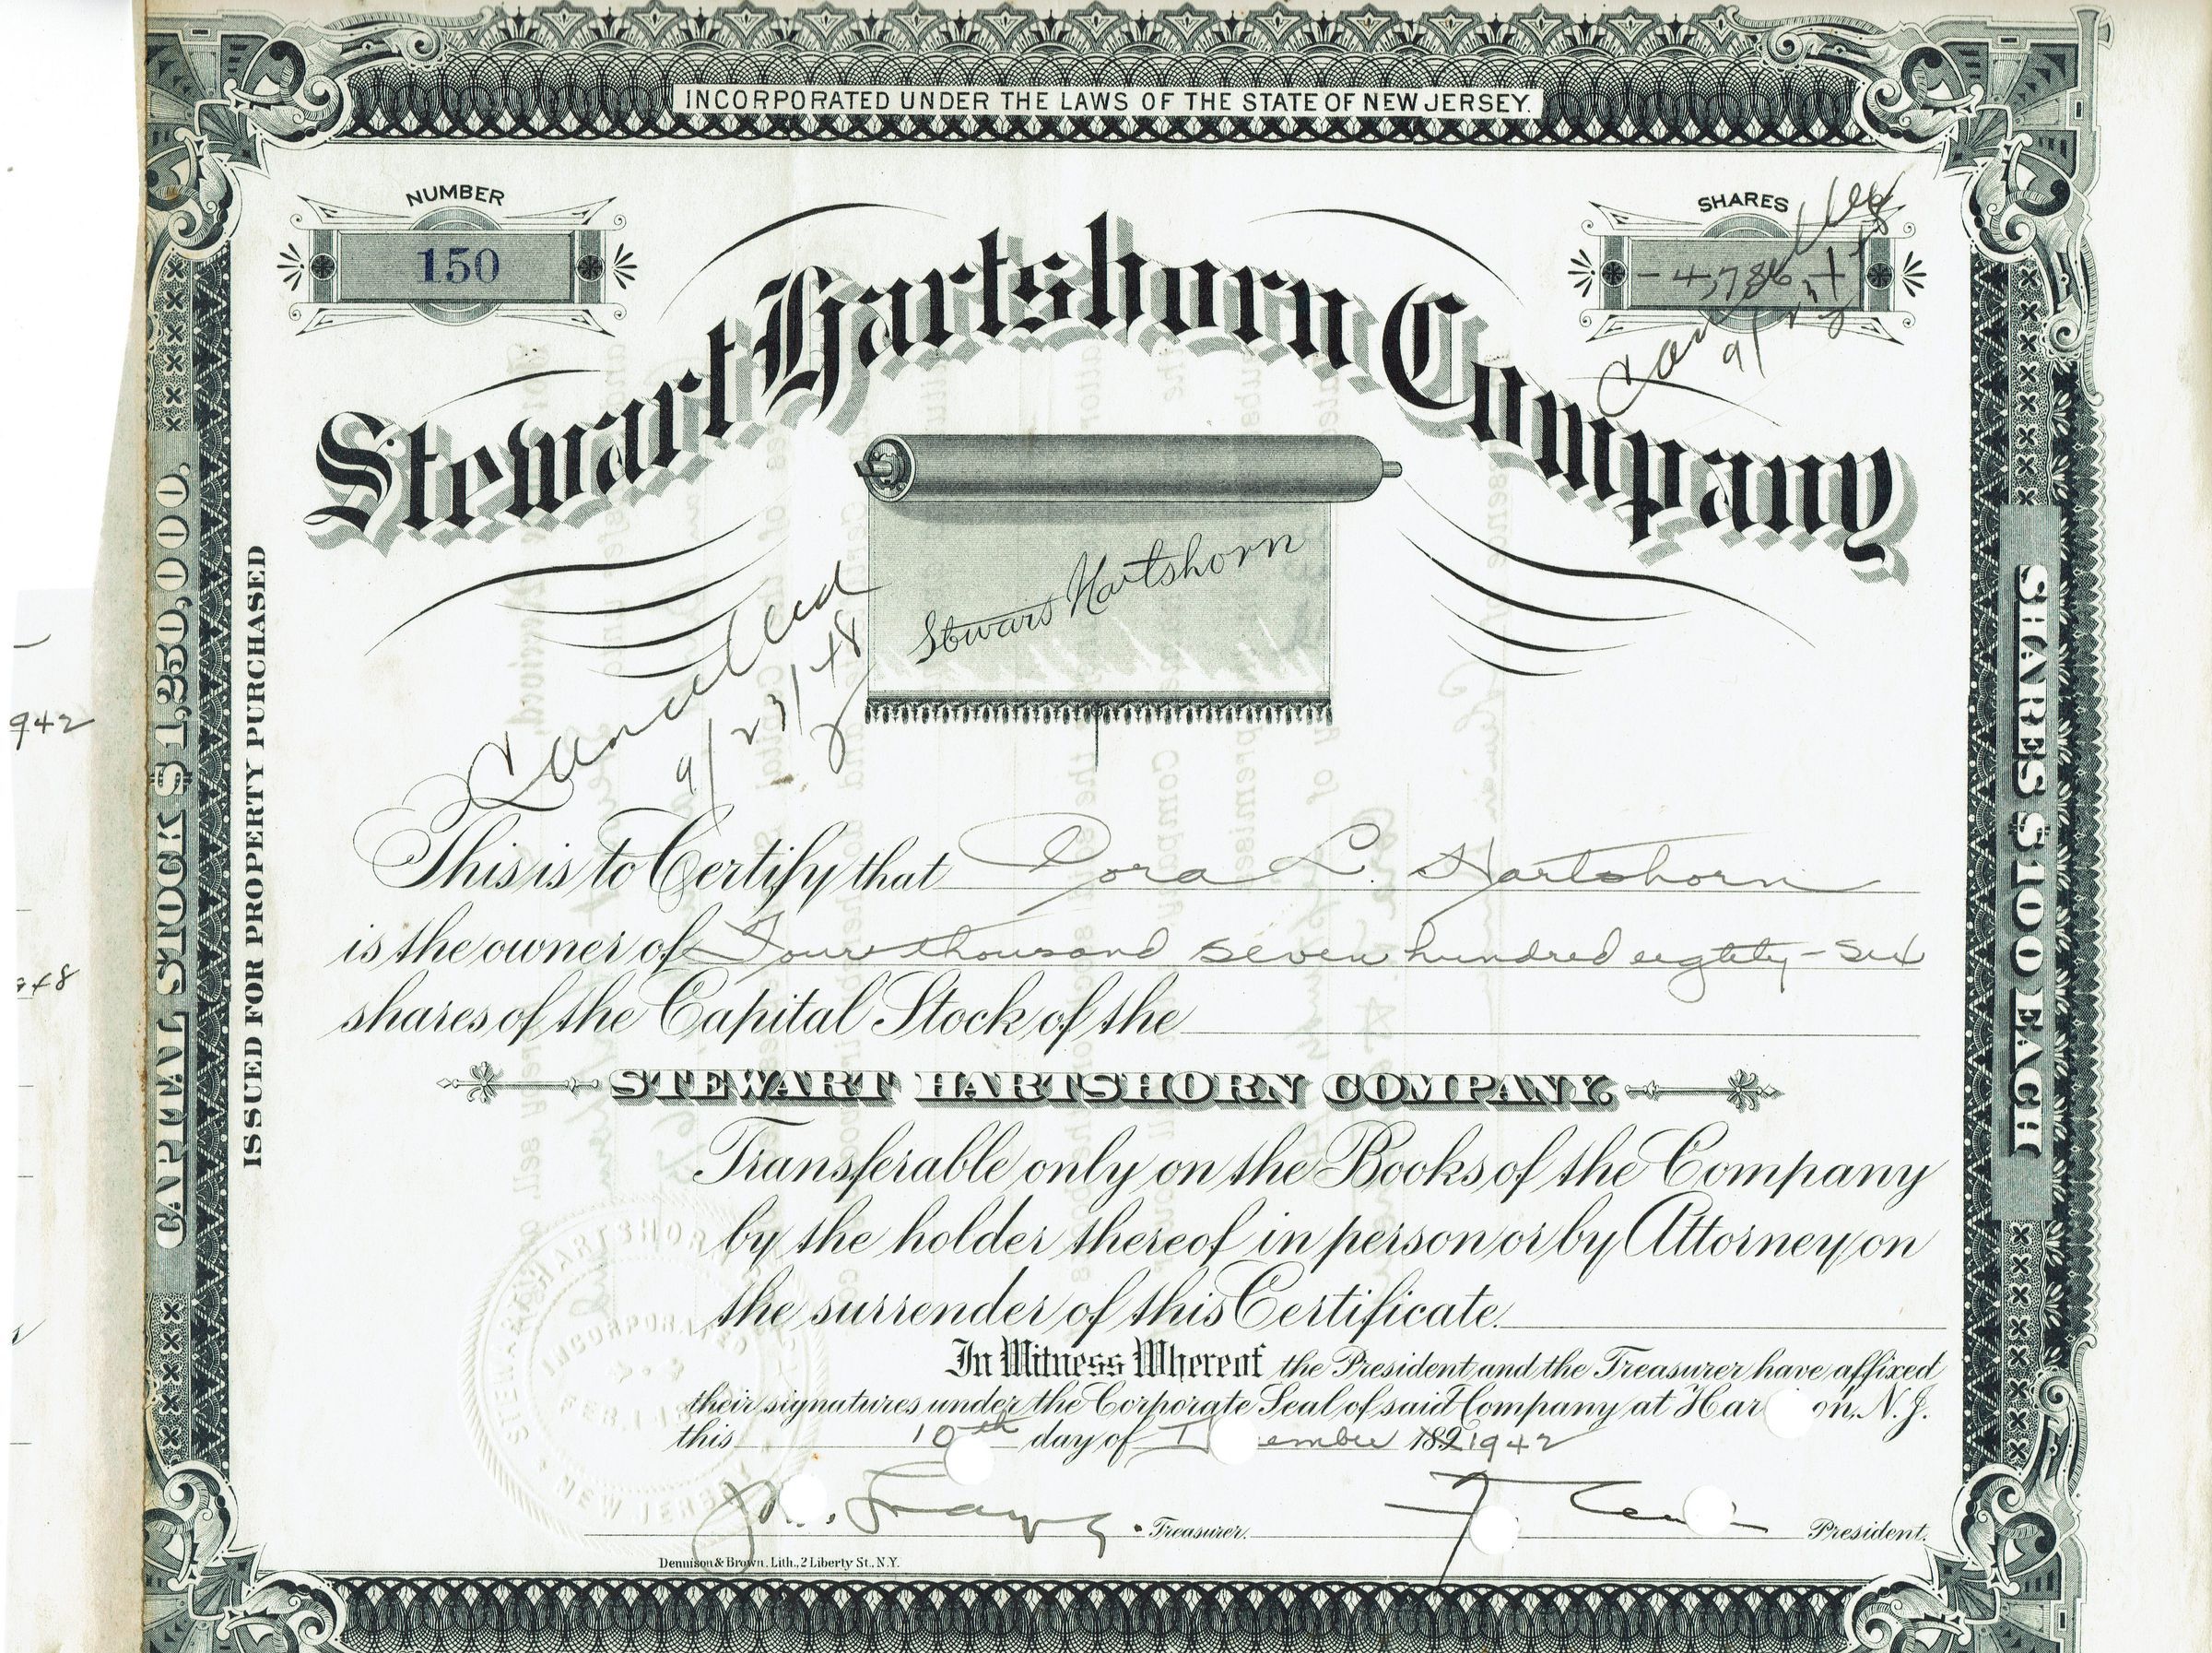 INCORPORATED UNDER THE LAWS OF THE STATE OF NEW JERSEY.
NUMBER
150
SHARES
-4,786-
Cancelled
9/23/48
Stewart Hartshorn Company
Stewart Hartshorn
Cancelled
9/23/48
CAPITAL STOCK $1,250,000.
ISSUED FOR PROPERTY PURCHASED
SHARES $100 EACH
942
948
This is to Certify that Cora L. Hartshorn
is the owner of Four thousand seven hundred eightety-six
shares of the Capital Stock of the
STEWART HARTSHORN COMPANY.
Transferable only on the Books of the Company
by the holder thereof in person or by Attorney on
the surrender of this Certificate.
In Witness Whereof the President and the Treasurer have affixed
their signatures under the Corporate Seal of said Company at Har on, N.J.
this 10th day of D ember 189 1942
Treasurer.
President.
STEWART HARTSHORN
INCORPORATED
NEW JERSEY
Dennison & Brown. Lith., 2 Liberty St., N.Y.